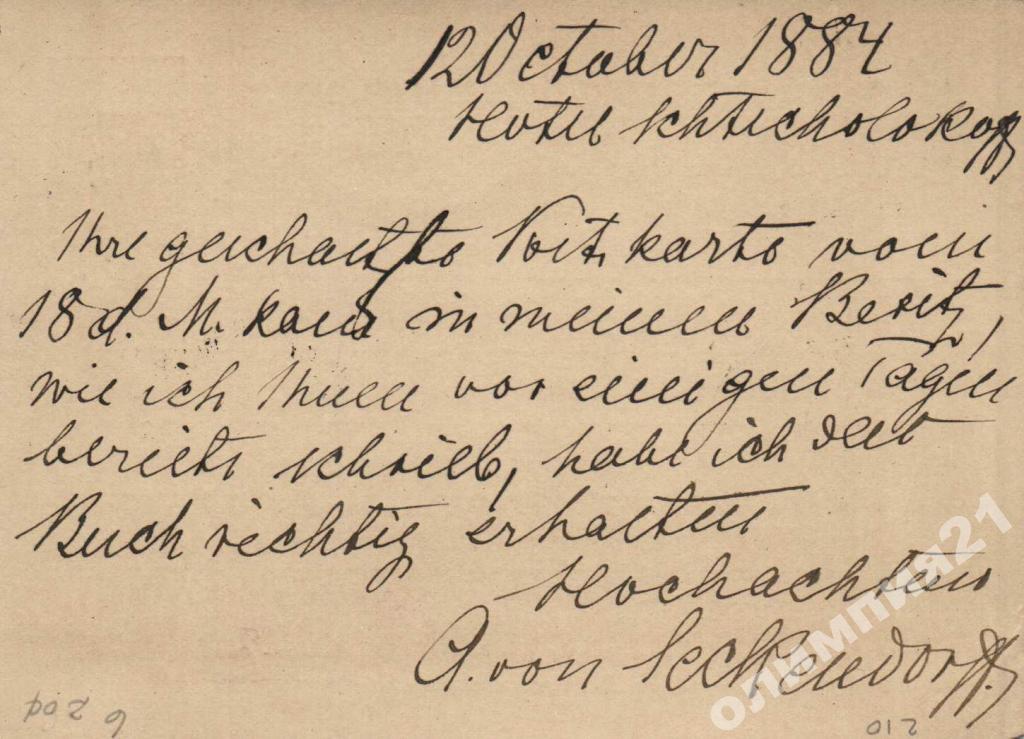 12 October 1884
Hotel Schtscholokoff
Ihre geschaetzte Postkarte vom
18 d. M. kam in meinen Besitz,
wie ich Ihnen vor einigen Tagen
bereits schrieb, habe ich das
Buch richtig erhalten
Hochachtend
A. von Seckendorff.
олимпия21
210